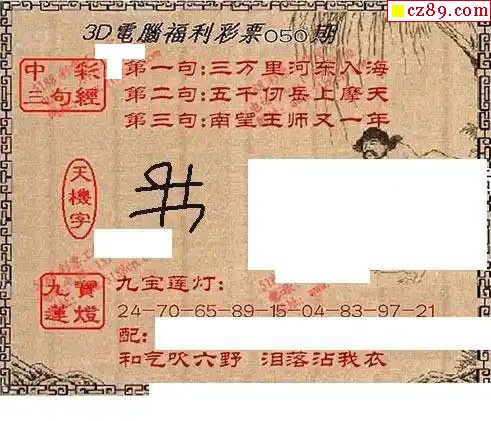 cz89.com
3D電腦福利彩票050期
中彩
三句經
第一句:三万里河东入海
第二句:五千仞岳上摩天
第三句:南望王师又一年
天機字
九寶
蓮燈
九宝莲灯:
24-70-65-89-15-04-83-97-21
配:
和气吹六野 泪落沾我衣